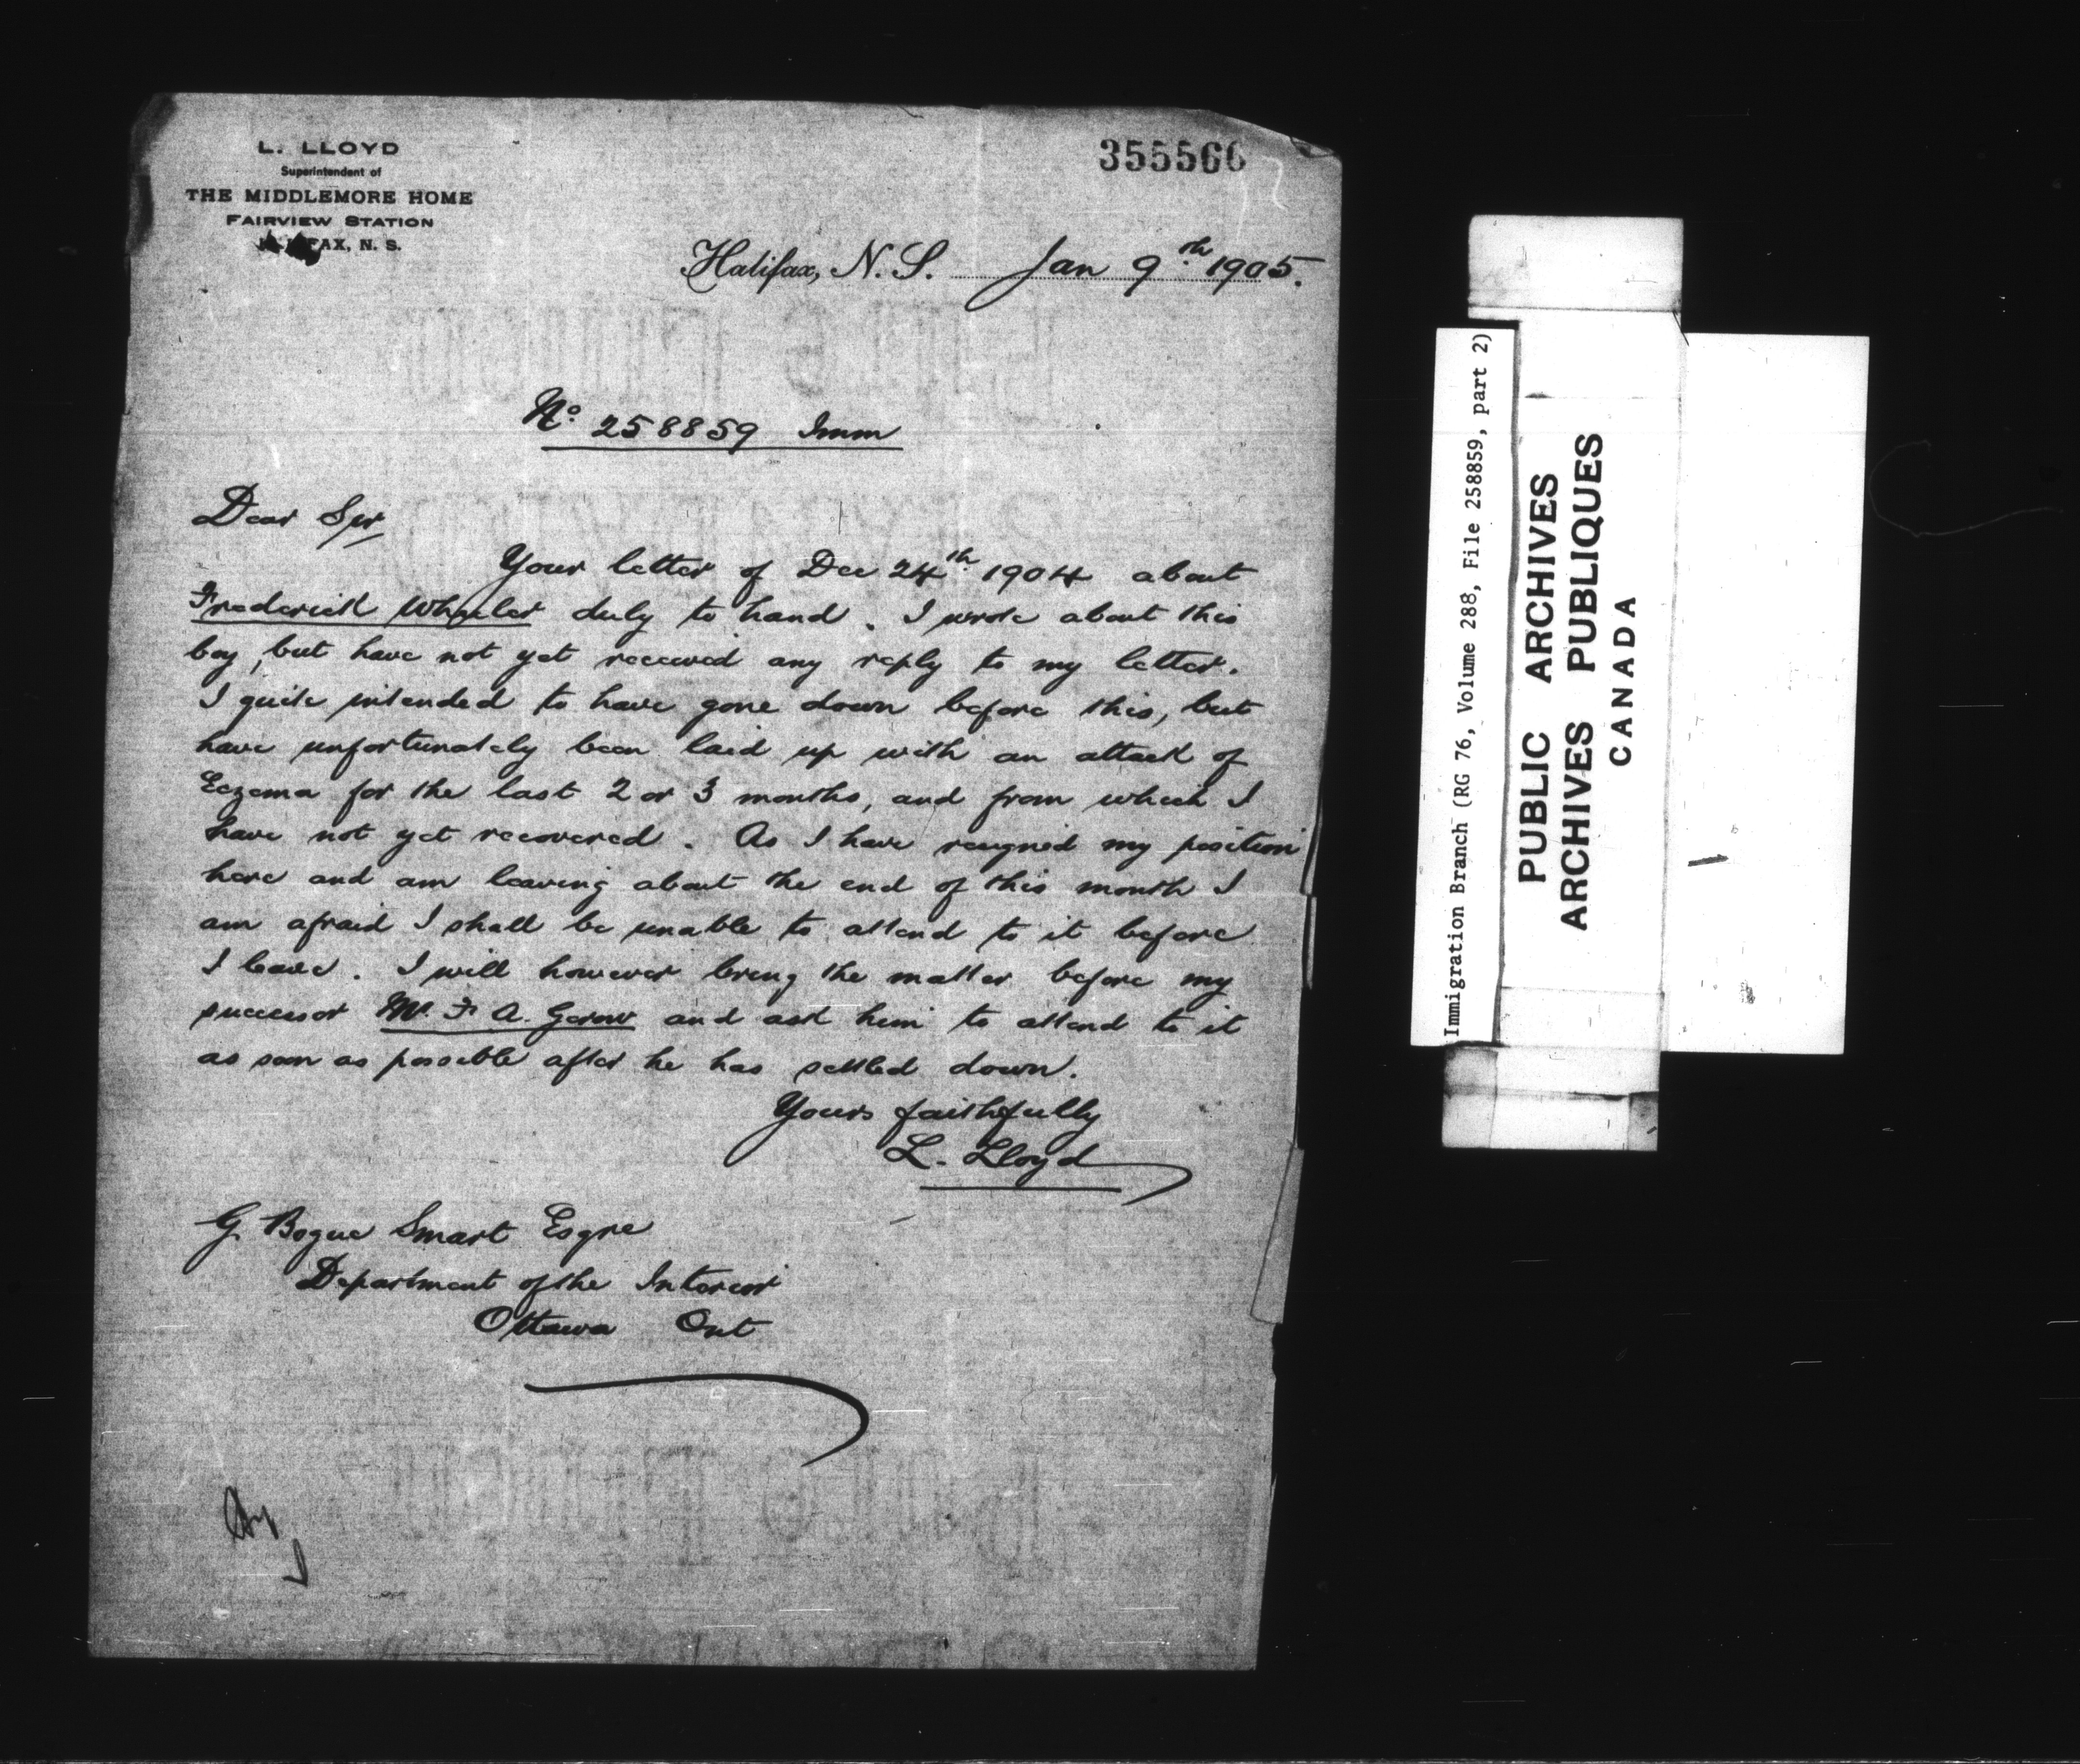 L. LLOYD
Superintendent of
THE MIDDLEMORE HOME
FAIRVIEW STATION
HALIFAX, N. S.
355566
Halifax, N. S. Jan 9th 1905.
No 258859 Imm
Dear Sir
Your letter of Dec 24th 1904 about
Frederick Wheeler duly to hand. I wrote about this
boy, but have not yet received any reply to my letter.
I quite intended to have gone down before this, but
have unfortunately been laid up with an attack of
Eczema for the last 2 or 3 months, and from which I
have not yet recovered. As I have resigned my position
here and am leaving about the end of this month I
am afraid I shall be unable to attend to it before
I leave. I will however bring the matter before my
successor Mr. F A. Gerow and ask him to attend to it
as soon as possible after he has settled down.
Yours faithfully
L. Lloyd
G. Bogue Smart Esqre
Department of the Interior
Ottawa Ont
Immigration Branch (RG 76, Volume 288, File 258859, part 2)
PUBLIC ARCHIVES
ARCHIVES PUBLIQUES
CANADA